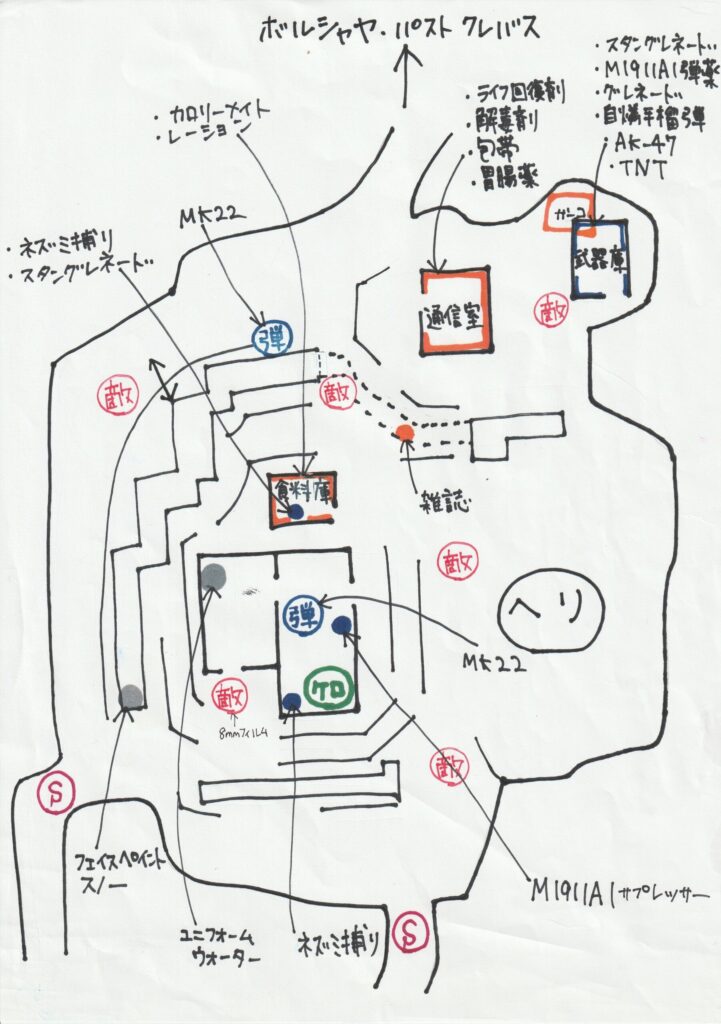 ボルシャヤ・パスト クレバス
・スタングレネード
・M1911A1弾薬
・グレネード
・白燐手榴弾
・AK-47
・TNT
・ライフ回復剤
・解毒剤
・包帯
・胃腸薬
・カロリーメイト
・レーション
MK22
・ネズミ捕り
・スタングレネード
武器庫
通信室
敵
弾
敵
敵
雑誌
食料庫
敵
ヘリ
弾
MK22
ケロ
敵
8mmフィルム
敵
S
フェイスペイント
スノー
M1911A1サプレッサー
ユニフォーム
ウォーター
ネズミ捕り
S